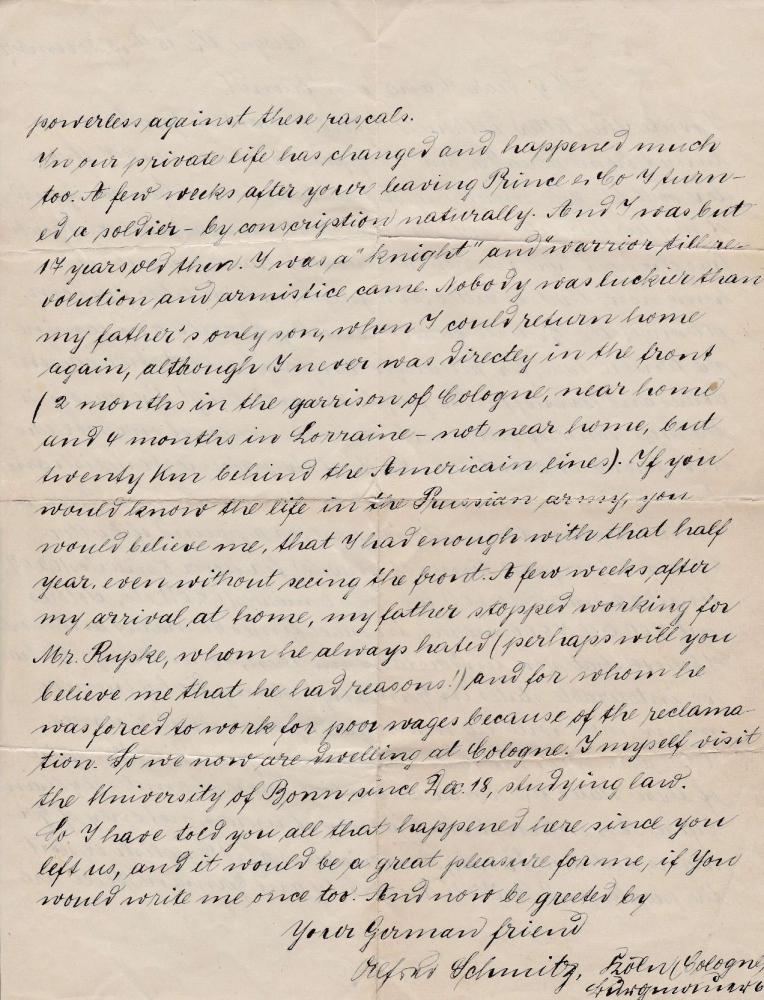 powerless against these rascals.
In our private life has changed and happened much
too. A few weeks after your leaving Prince & Co I turn-
ed a soldier - by conscription naturally. And I was but
17 years old then. I was a "knight" and "warrior till re-
volution and armistice came. Nobody was luckier than
my father's only son, when I could return home
again, although I never was directly in the front
(2 months in the garrison of Cologne, near home
and 4 months in Lorraine - not near home, but
twenty Km behind the Americain lines). If you
would know the life in the Prussian army, you
would believe me, that I had enough with that half
year, even without seeing the front. A few weeks after
my arrival, at home, my father stopped working for
Mr. Rupke, whom he always hated (perhaps will you
believe me that he had reasons!) and for whom he
was forced to work for poor wages because of the reclama-
tion. So we now are dwelling at Cologne. I myself visit
the University of Bonn since Dec. 18, studying law.
So I have told you all that happened here since you
left us, and it would be a great pleasure for me, if You
would write me once too. And now be greeted by
Your German friend
Alfred Schmitz, Köln (Cologne)